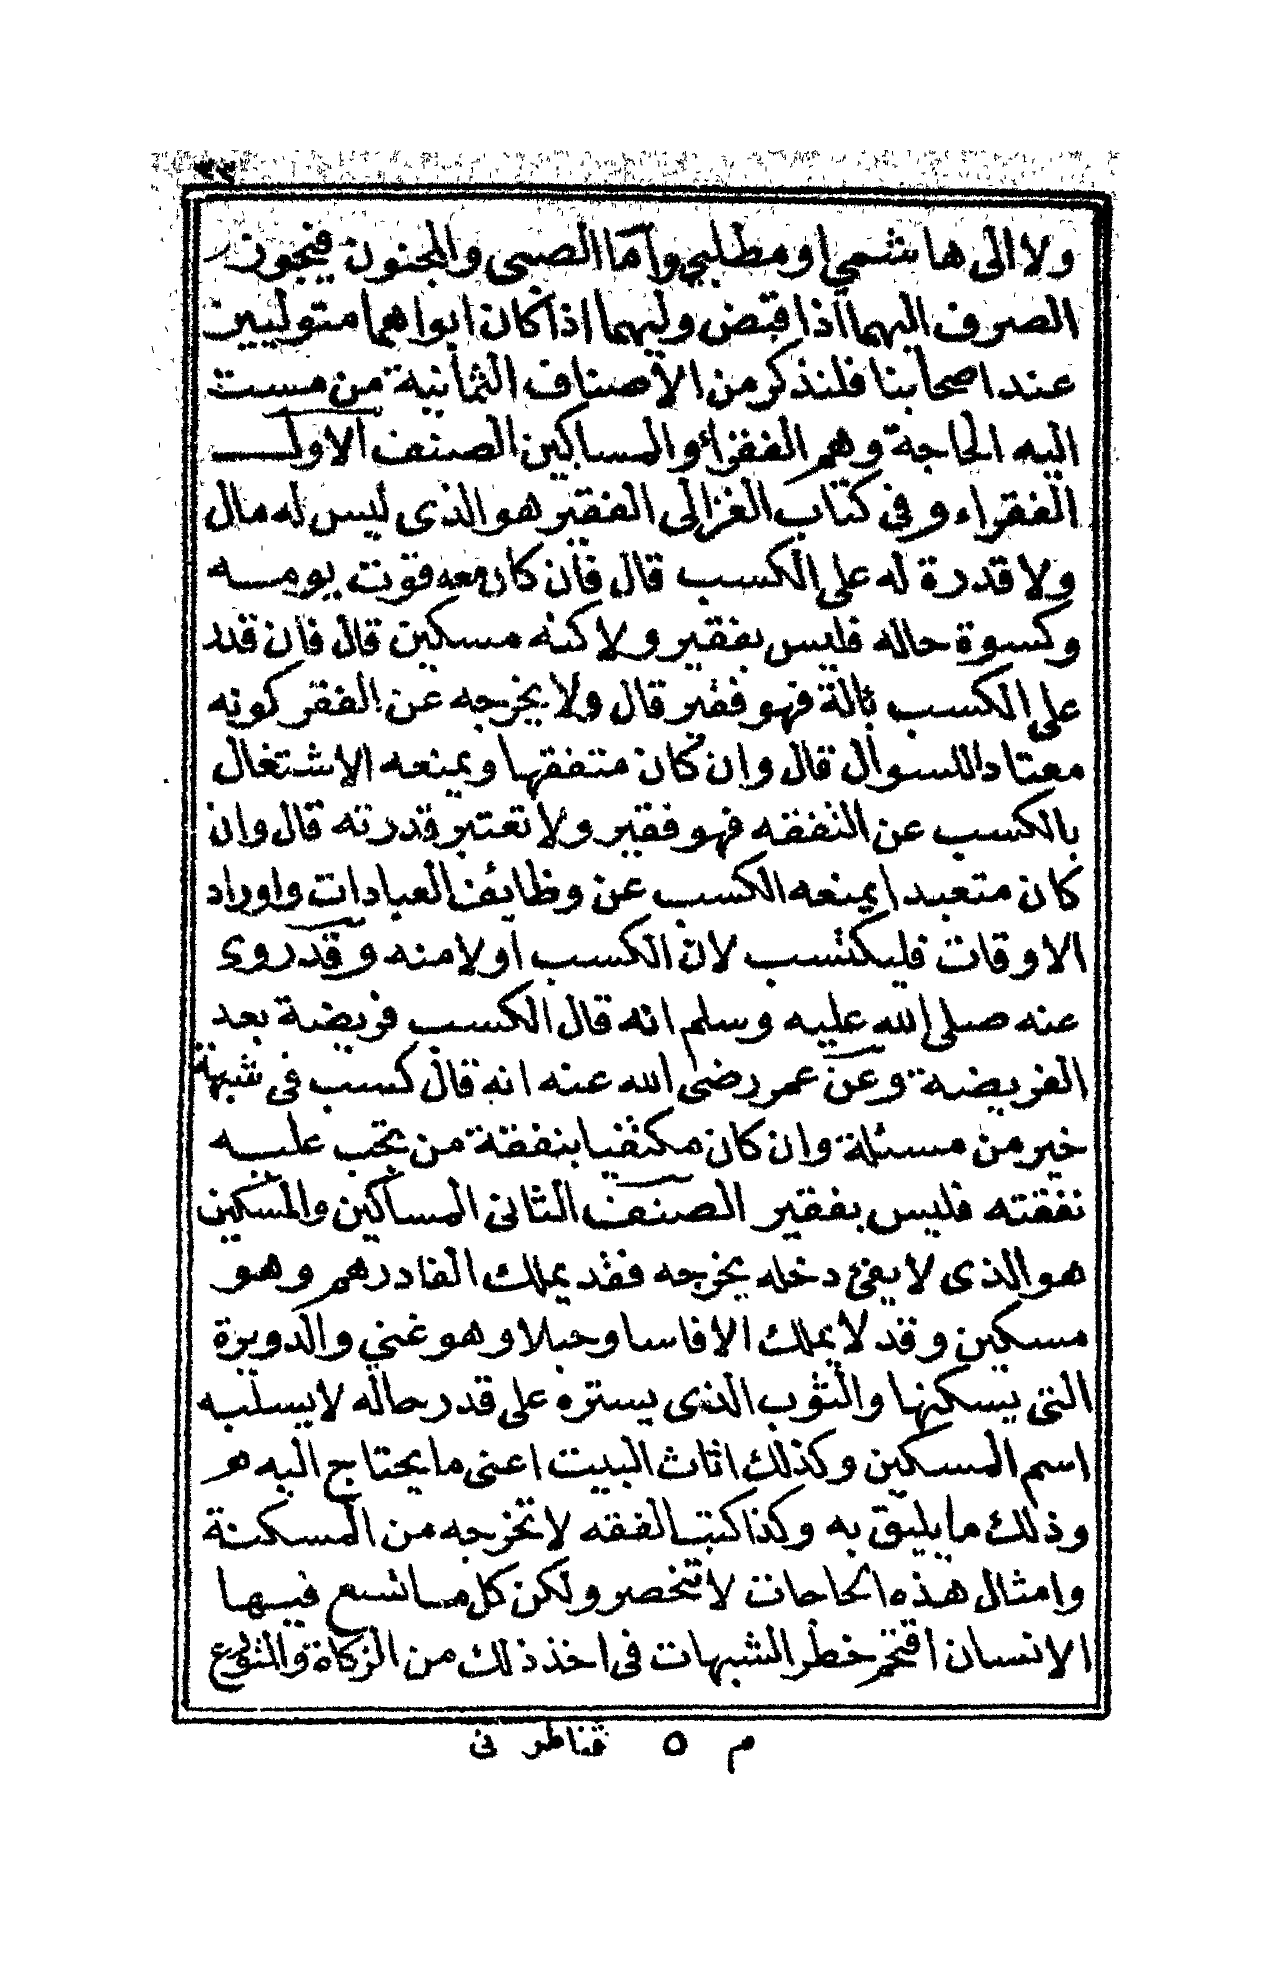 ٣٣
ولا الى هاشمي او مطلبي وأما الصبى والمجنون فيجوز
الصرف اليهما اذا قبض وليهما اذا كان ابواهما متوليين
عند اصحابنا فلنذكر من الاصناف الثمانية من مست
اليه الحاجة وهم الفقراء والمساكين الصنف الاول
الفقراء وفى كتاب الغزالى الفقير هو الذى ليس له مال
ولا قدرة له على الكسب قال فان كان معه قوت يومه
وكسوة حاله فليس بفقير ولاكنه مسكين قال فان قدر
على الكسب بآلة فهو فقير قال ولا يخرجه عن الفقر كونه
معتادا للسوال قال وان كان متفقها ويمنعه الاشتغال
بالكسب عن التفقه فهو فقير ولا تعتبر قدرته قال وان
كان متعبدا يمنعه الكسب عن وظايف العبادات واوراد
الاوقات فليكتسب لان الكسب اولا منه وقد روى
عنه صلى الله عليه وسلم انه قال الكسب فريضة بعد
الفريضة وعن عمر رضى الله عنه انه قال كسب فى شبهة
خير من مسئلة وان كان مكتفيا بنفقة من تجب عليه
نفقته فليس بفقير الصنف الثانى المساكين والمسكين
هو الذى لا يفئ دخله بخرجه فقد يملك الفا درهم وهو
مسكين وقد لا يملك الا فاسا وحبلا وهو غني والدويرة
التى يسكنها والثوب الذى يستره على قدر حاله لا يسلبه
اسم المسكين وكذلك اثاث البيت اعنى ما يحتاج اليه هو
وذلك ما يليق به وكذا كتب الفقه لا تخرجه من المسكنة
وامثال هذه الحاجات لا تنحصر ولكن كل ما اتسع فيها
الانسان اقتحم خطر الشبهات فى اخذ ذلك من الزكاة والتورع
م ٥ قناطر نى